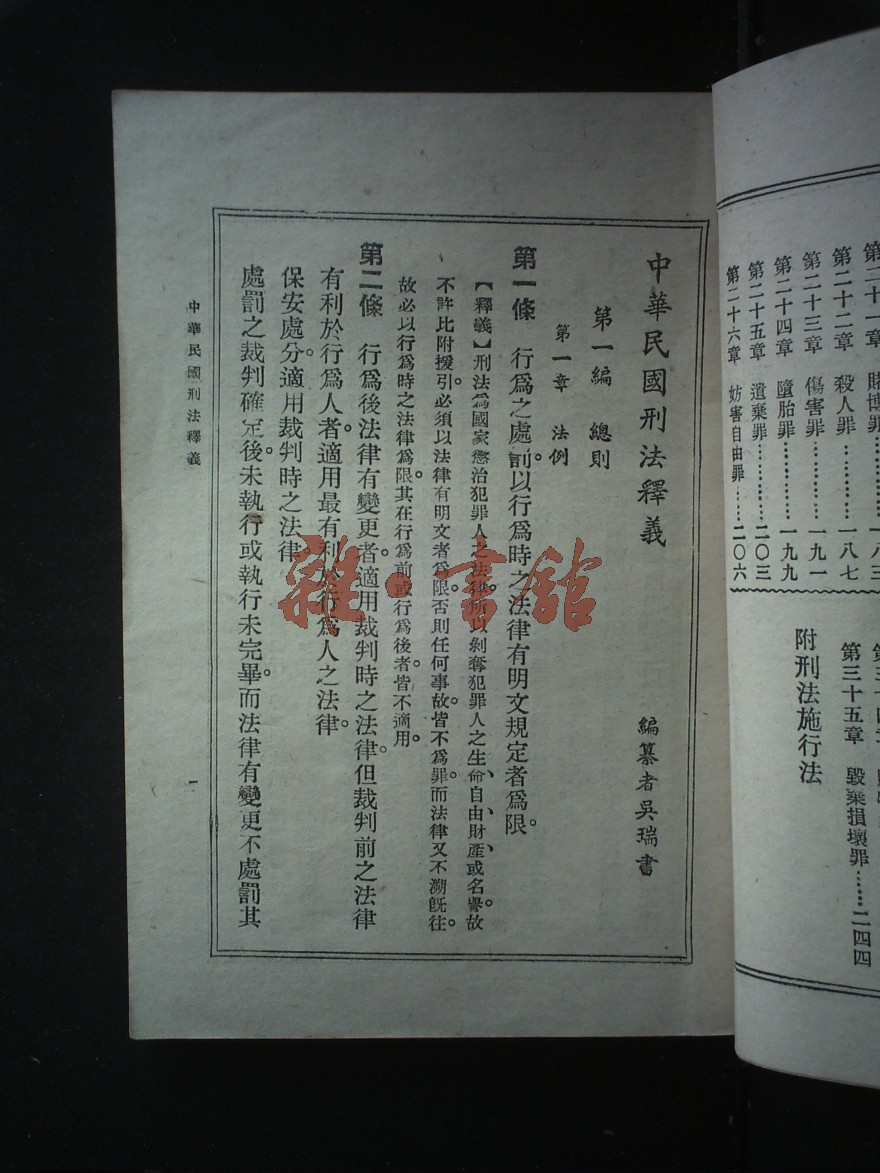 第二十一章 賭博罪………一八三
第二十二章 殺人罪………一八七
第二十三章 傷害罪………一九一
第二十四章 墮胎罪………一九九
第二十五章 遺棄罪………二〇三
第二十六章 妨害自由罪……二〇六
第三十四章
第三十五章 毀棄損壞罪……二四四
附刑法施行法
中華民國刑法釋義
編纂者吳瑞書
第一編 總則
第一章 法例
第一條 行爲之處罰。以行爲時之法律有明文規定者爲限。
【釋義】刑法爲國家懲治犯罪人之法律。所以剝奪犯罪人之生命、自由、財產、或名譽。故
不許比附援引。必須以法律有明文者爲限。否則任何事故。皆不爲罪。而法律又不溯旣往。
故必以行爲時之法律爲限。其在行爲前或行爲後者。皆不適用。
第二條 行爲後法律有變更者。適用裁判時之法律。但裁判前之法律
有利於行爲人者。適用最有利於行爲人之法律。
保安處分。適用裁判時之法律。
處罰之裁判確定後。未執行或執行未完畢。而法律有變更不處罰其
中華民國刑法釋義
一
雜·書館